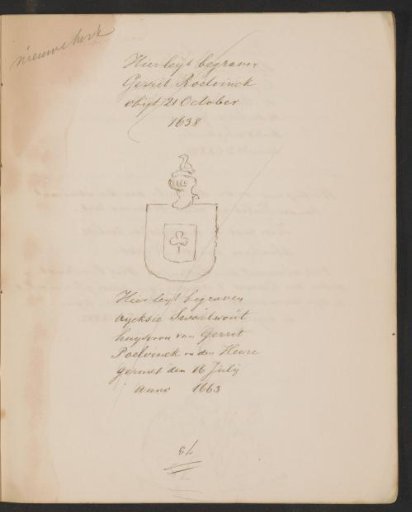 nieuwe kerk
Hier leyt begraven
Gerrit Roelvinck
obyt 21 October
1638
Hier leyt begraven
huysvrou van Gerrit
Roelvinck in den Heere
gerust den 16 July
anno 1663